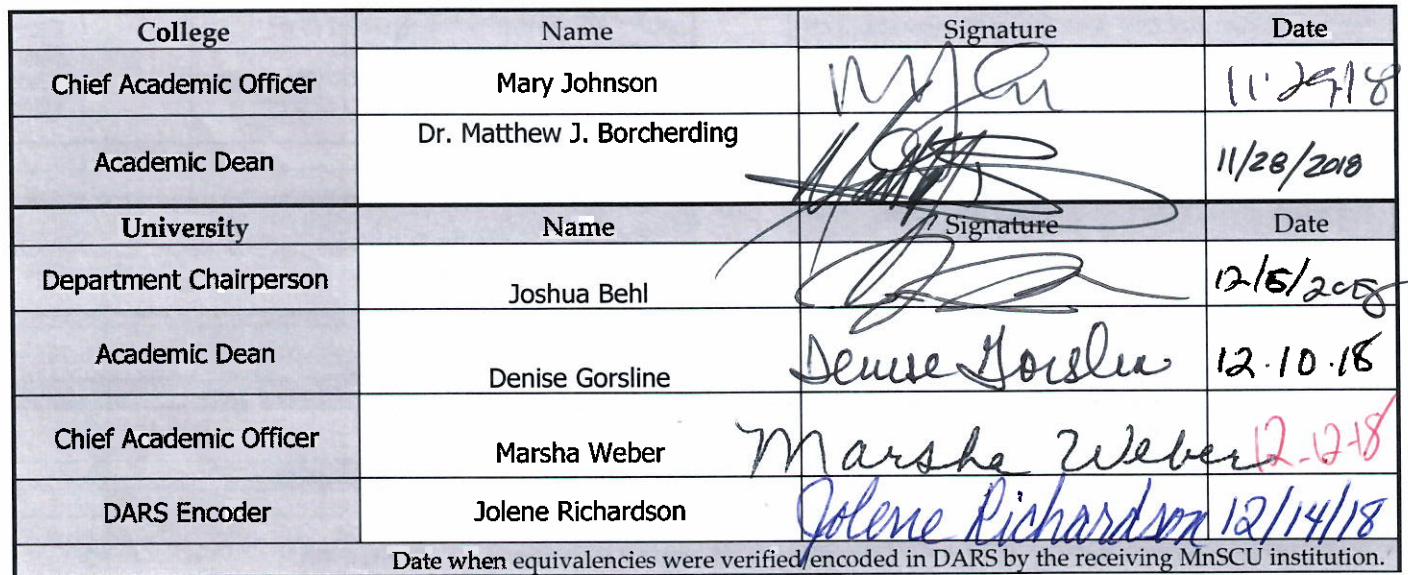 College Name Signature Date
Chief Academic Officer Mary Johnson 11.29.18
Academic Dean Dr. Matthew J. Borcherding 11/28/2018
University Name Signature Date
Department Chairperson Joshua Behl 12/5/2018
Academic Dean Denise Gorsline Denise Gorsline 12.10.18
Chief Academic Officer Marsha Weber Marsha Weber 12-12-18
DARS Encoder Jolene Richardson Jolene Richardson 12/14/18
Date when equivalencies were verified/encoded in DARS by the receiving MnSCU institution.